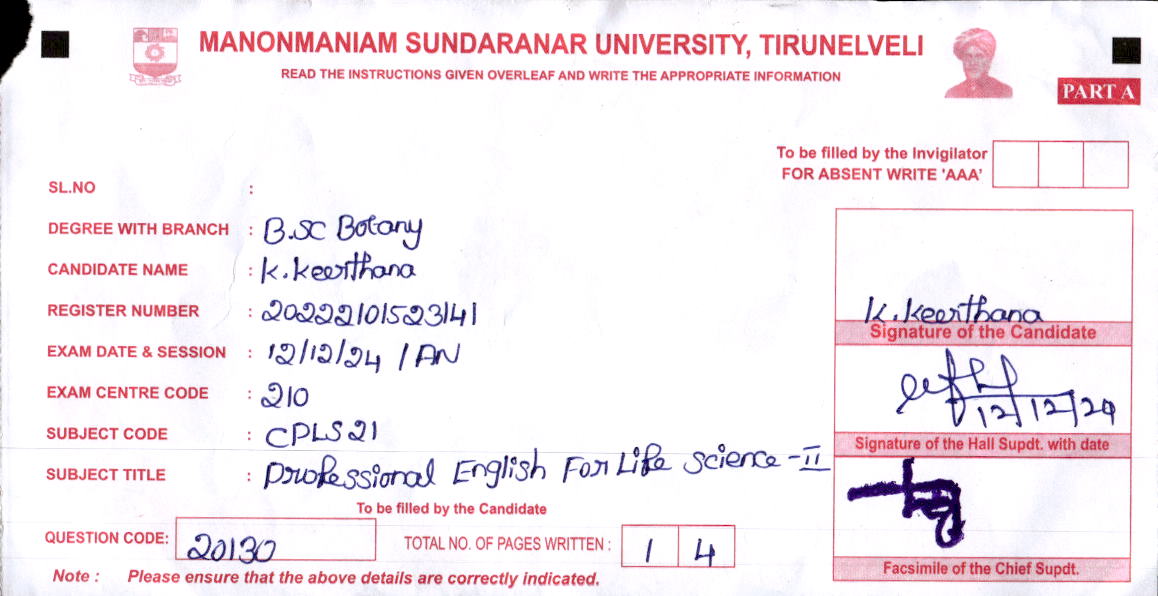 MANONMANIAM SUNDARANAR UNIVERSITY, TIRUNELVELI
READ THE INSTRUCTIONS GIVEN OVERLEAF AND WRITE THE APPROPRIATE INFORMATION
PART A
To be filled by the Invigilator
FOR ABSENT WRITE 'AAA'
SL.NO :
DEGREE WITH BRANCH : B.SC Botany
CANDIDATE NAME : K.Keerthana
REGISTER NUMBER : 20222101523141
EXAM DATE & SESSION : 12/12/24 / AN
EXAM CENTRE CODE : 210
SUBJECT CODE : CPLS21
SUBJECT TITLE : Professional English For Life Science - II
K.Keerthana
Signature of the Candidate
12/12/24
Signature of the Hall Supdt. with date
Facsimile of the Chief Supdt.
To be filled by the Candidate
QUESTION CODE: 20130
TOTAL NO. OF PAGES WRITTEN : 1 4
Note : Please ensure that the above details are correctly indicated.